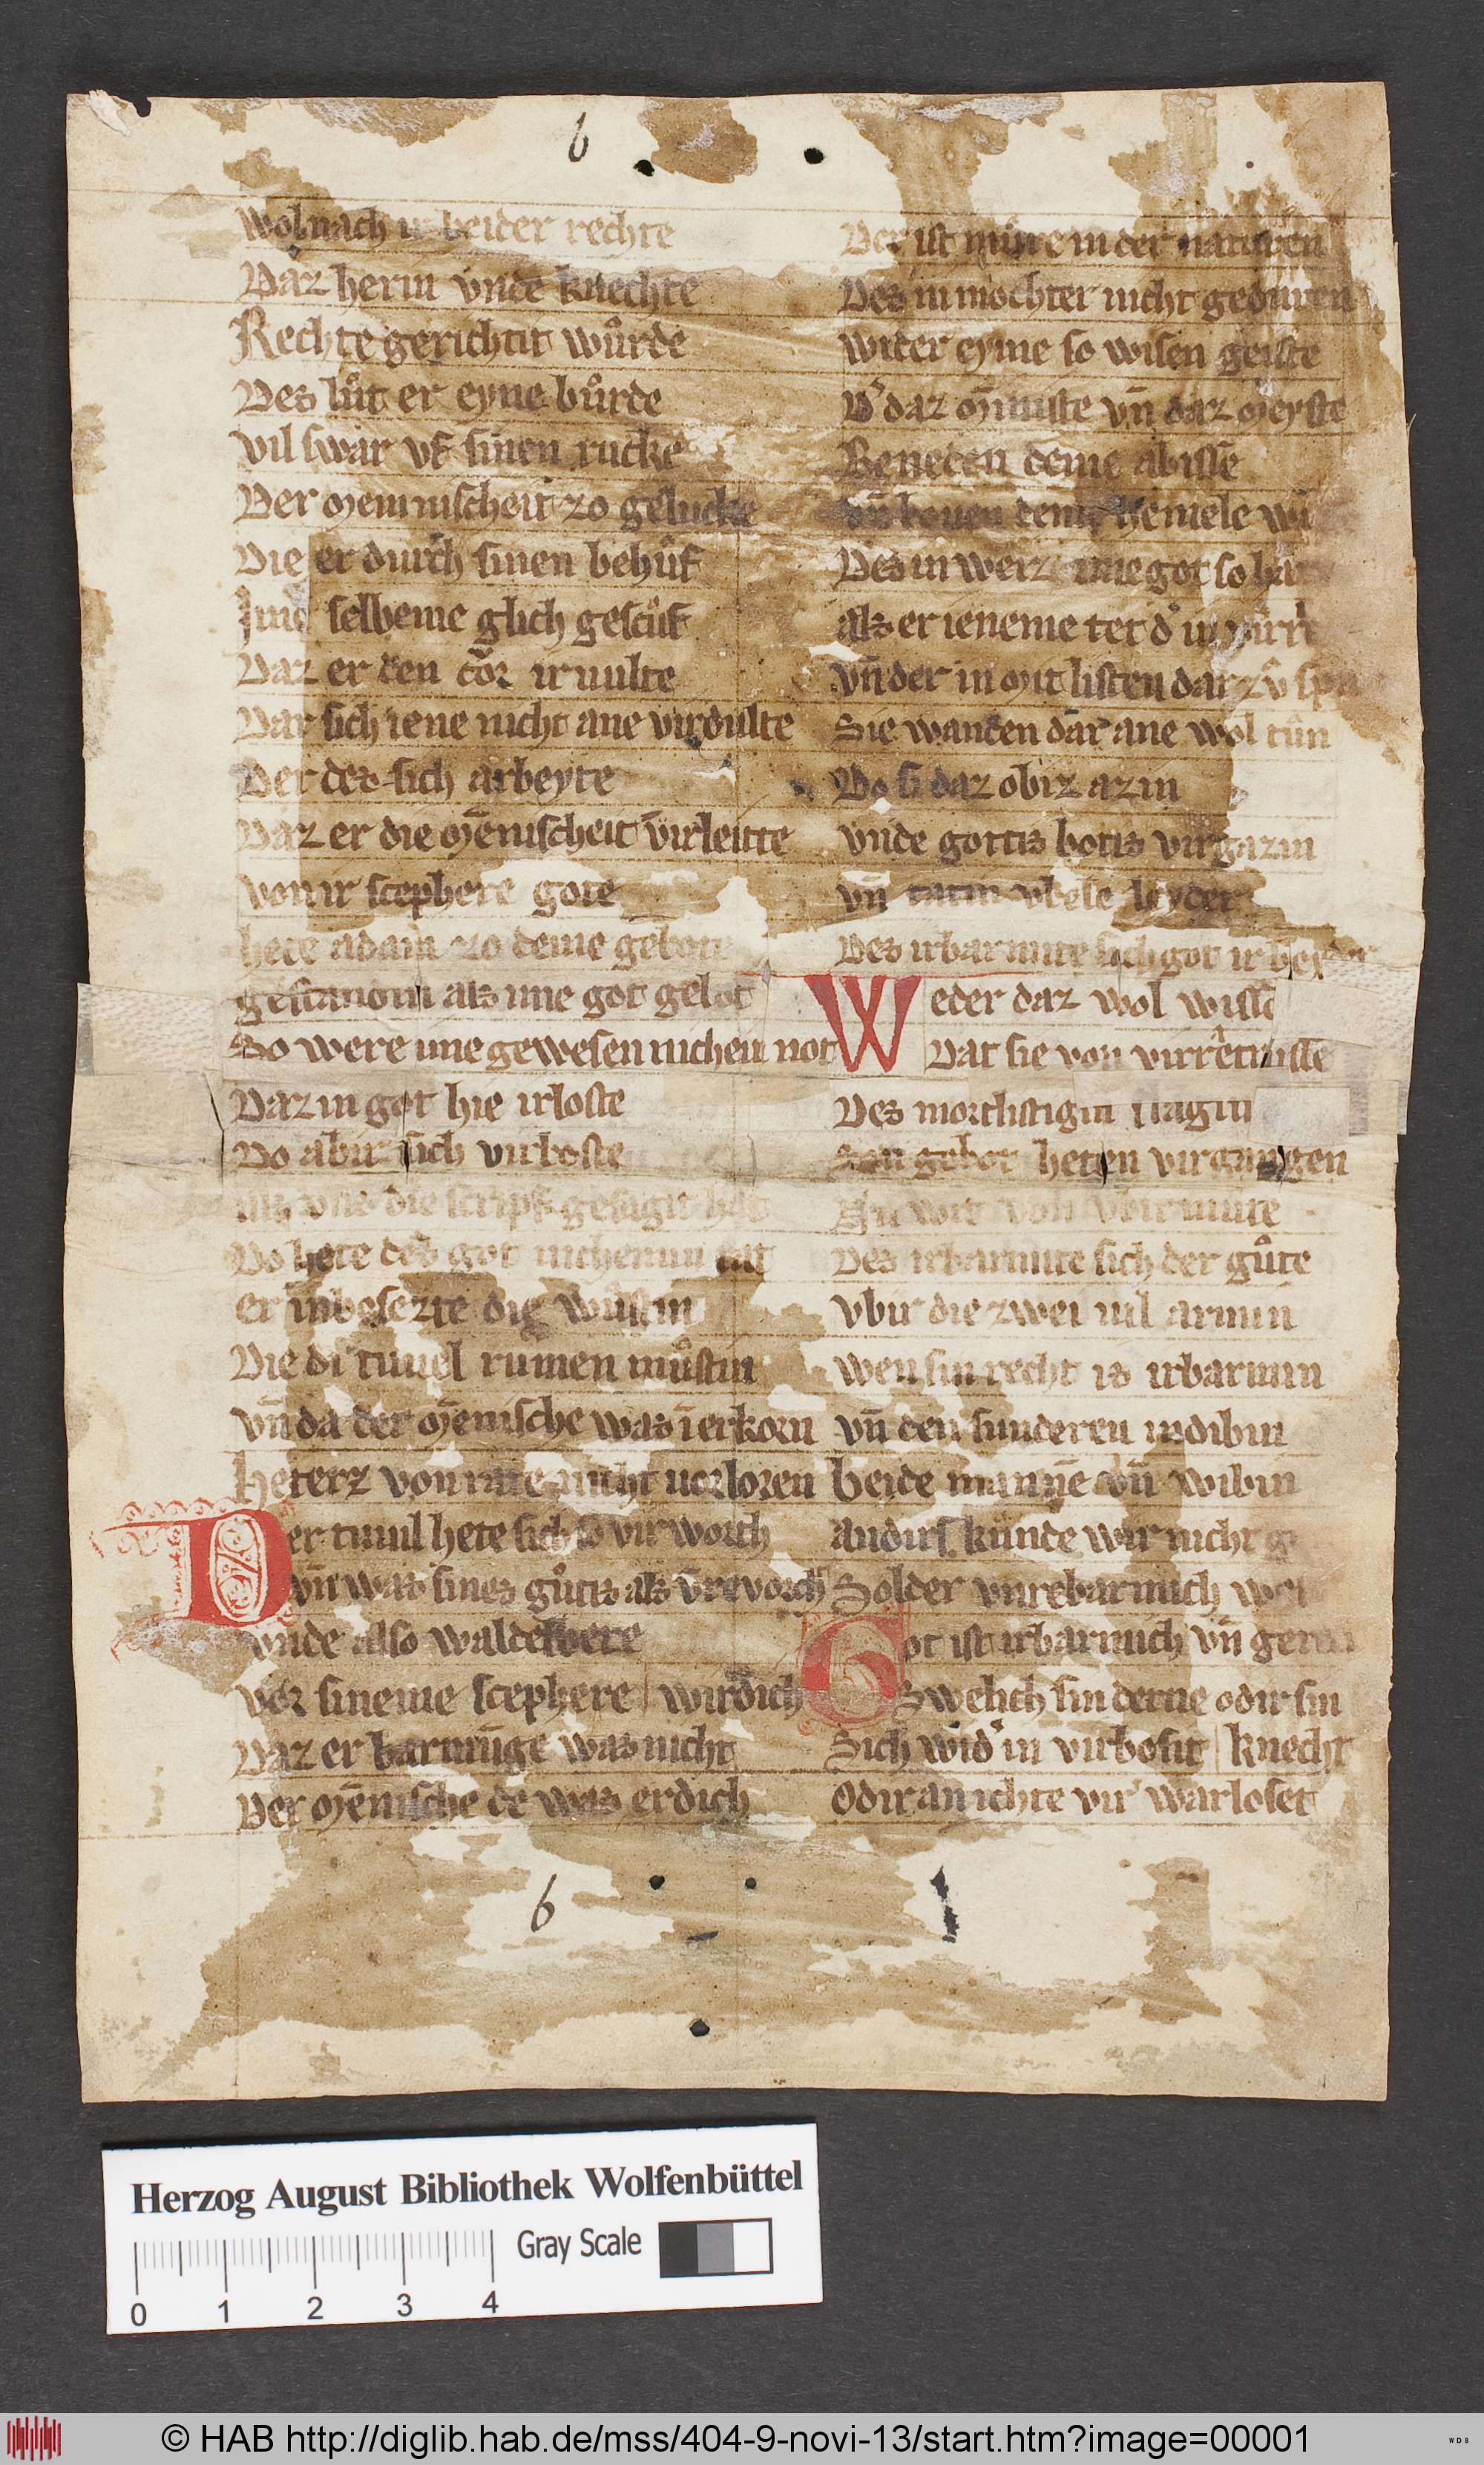 6
wol nach ir beider rechte
Daz herin vnde knechte
Rechte gerichtit wůrde
Des lůt er eyne bůrde
vil swar vf sinen rucke
Der mennischeit zo gelucke
Die er durch sinen behůf
Ime selbeme glich gescůf
Daz er den cor irvulte
Dar sich iene nicht ane virdulte
Der des sich arbeyte
Daz er die mēnischeit virleitte
von ir scephere gote
hete adam zo deme gebote
gestandin als ime got gebot
So were ime gewesen nichein not
Daz in got hie irloste
Do abir sich virboste
als vns die scripf gesagit hat
Do hete des got nicheinin rat
er in besezte die wůstin
Die di tuuel rumen můstin
vn̄ da der mēnische was ī erkorn
heterz von rate nicht uorloren
Der tuuil hete sich so vir worch
vn̄ was sines gůtis als
vnde also waldebere
vor sineme scephere | wirdich
Daz er barmūge was nicht
Der mēnische de was er dich
Der ist můre in der naturen
Des in mochter nicht geduren
wider eyme so wisen geiste
D' daz minniste vn̄ daz meyste
Beneden deme abisse
vn̄ bouen deme hemele wi
Des in weiz ime got so har
als er ieneme tet d' in
vn̄ der in mit listen dar zů
Sie wanden dar ane wol tůn
Do si daz obiz azin
vnde gottis botis virgazin
vn̄ tatin vbele leyder
Des irbarmite sich got ir beyder
Weder daz wol wisse
Dat sie von virretnisse
Des mortlistigin slagin
Sin gebot heten virgangen
vbirmute
Des irbarmite sich der gůte
vbir die zwei vil armin
wen sin recht is irbarmin
vn̄ den sunderen
beide manne vn̄ wibin
andirs kunde wir nicht
Solder vnrebarmich
Got ist irbarmich vn̄
Swelich sin derne odir sin
Sich wid' in virbosit | knecht
Odir an ichte vir warloset
6
Herzog August Bibliothek Wolfenbüttel
Gray Scale
0 1 2 3 4
© HAB http://diglib.hab.de/mss/404-9-novi-13/start.htm?image=00001
WDB